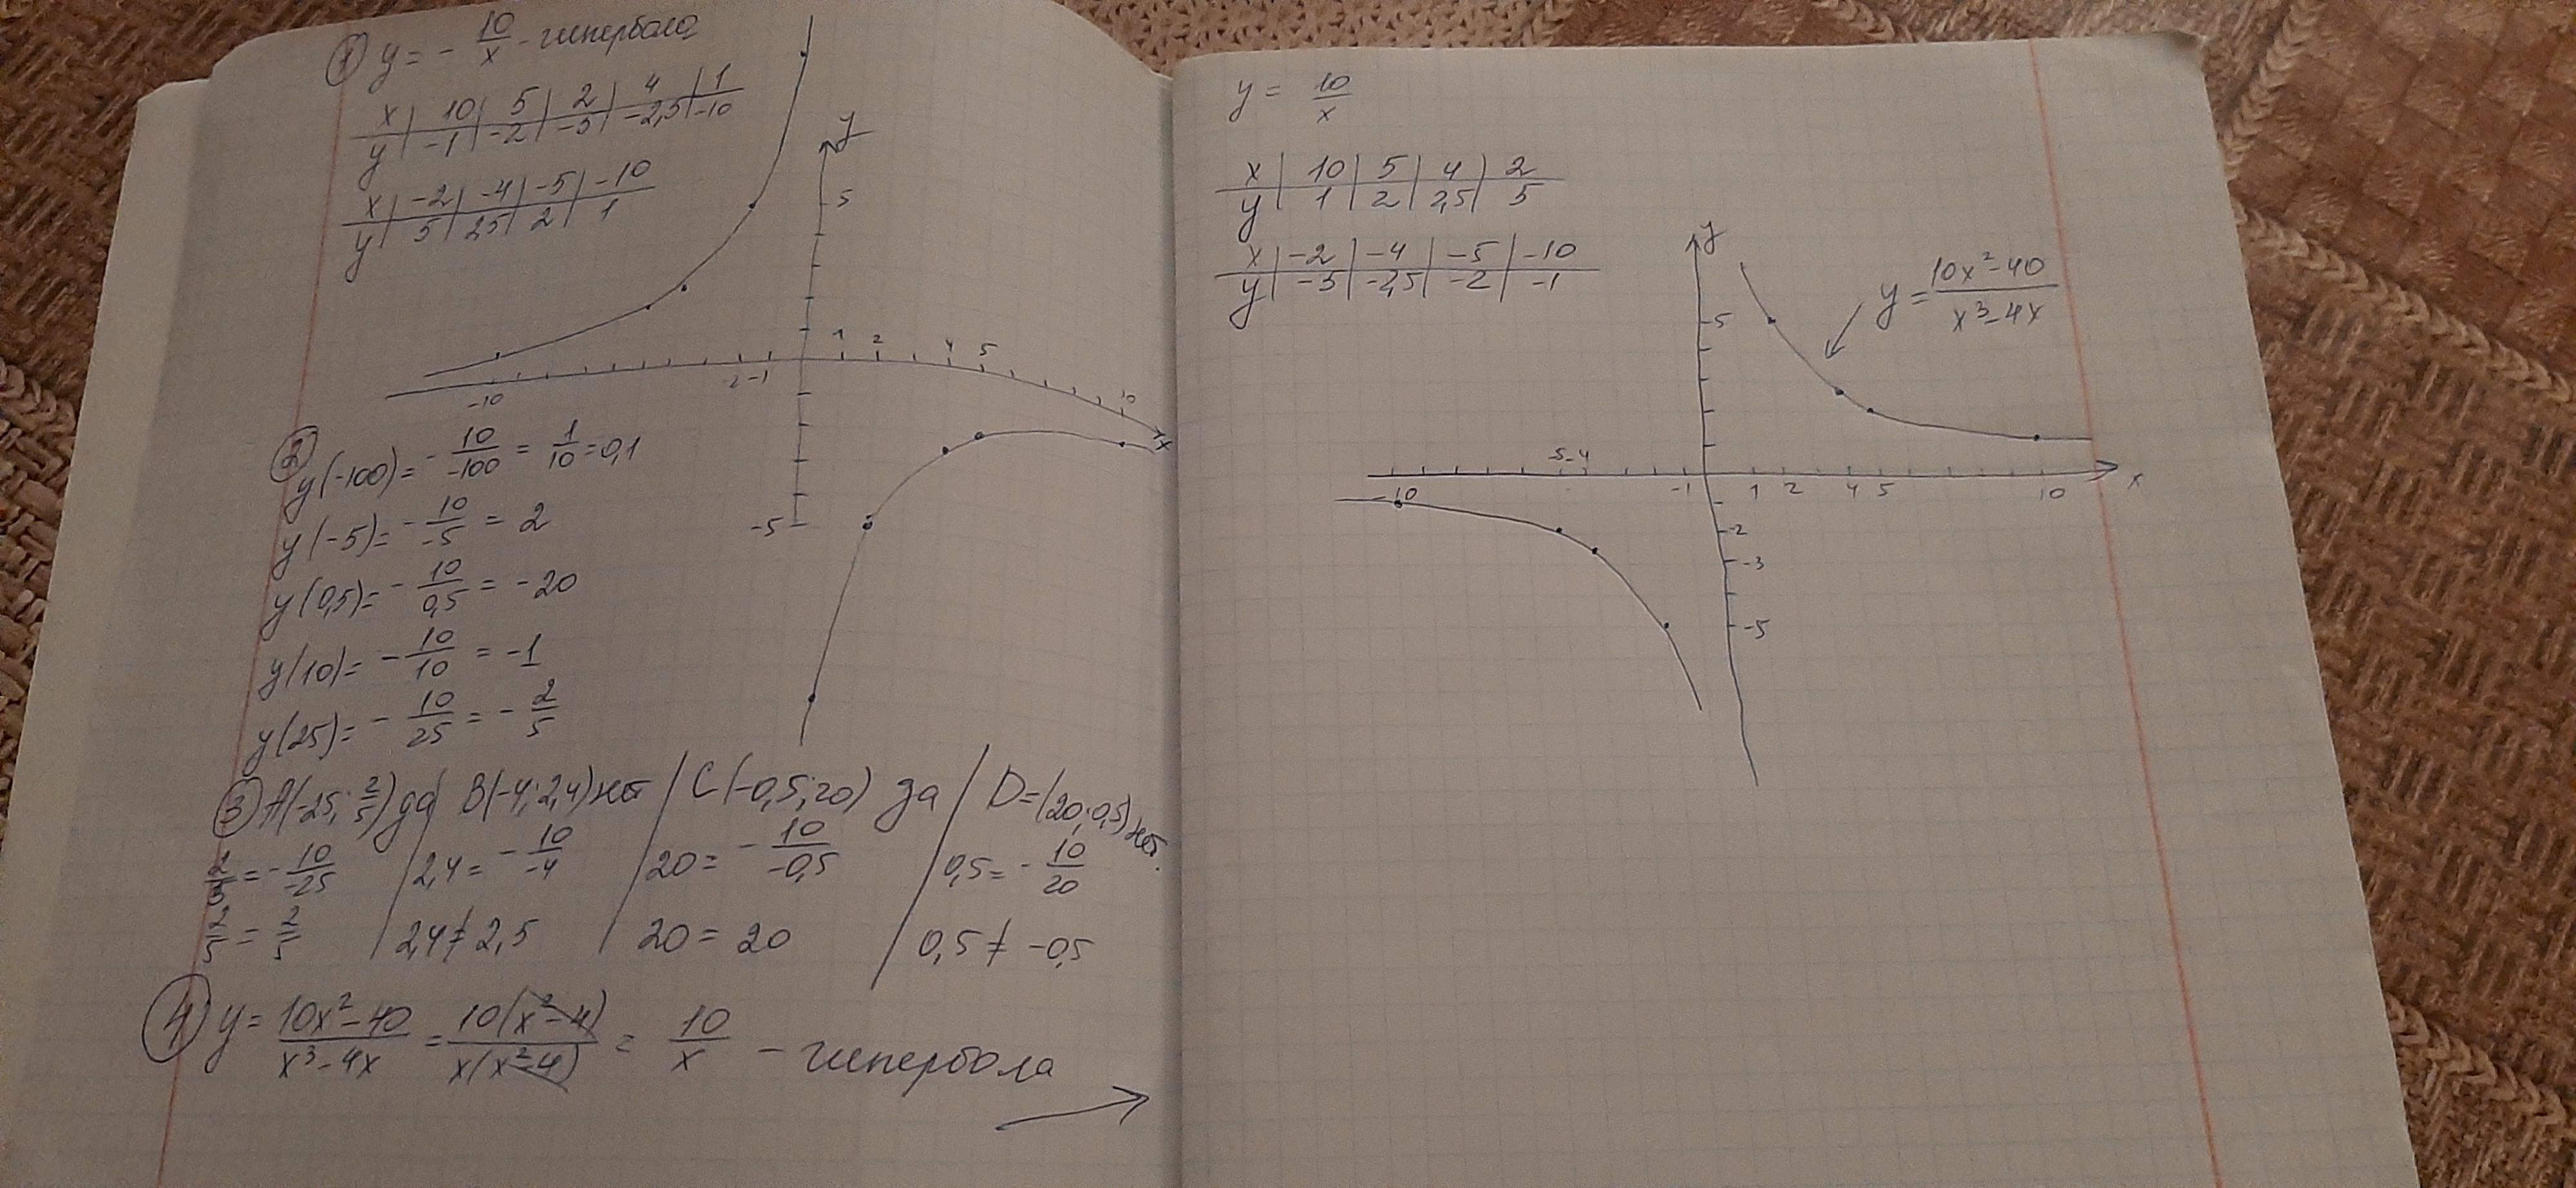 ① y = - 10/x - гипербола
x | 10 | 5 | 2 | 4 | 1
y | -1 | -2 | -5 | -2,5 | -10
x | -2 | -4 | -5 | -10
y | 5 | 2,5 | 2 | 1
y
5
1 2 4 5 10
-10 -2 -1
x
-5
② y(-100) = - 10/-100 = 1/10 = 0,1
y(-5) = - 10/-5 = 2
y(0,5) = - 10/0,5 = -20
y(10) = - 10/10 = -1
y(25) = - 10/25 = - 2/5
③ A(-25; 2/5) да | B(-4; 2,4) нет | C(-0,5; 20) да | D=(20; 0,5) нет.
2/5 = - 10/-25 | 2,4 = - 10/-4 | 20 = - 10/-0,5 | 0,5 = - 10/20
2/5 = 2/5 | 2,4 ≠ 2,5 | 20 = 20 | 0,5 ≠ -0,5
④ y = 10x²-40/x³-4x = 10(x²-4)/x(x²-4) = 10/x - гипербола
y = 10/x
x | 10 | 5 | 4 | 2
y | 1 | 2 | 2,5 | 5
x | -2 | -4 | -5 | -10
y | -5 | -2,5 | -2 | -1
y
y = 10x²-40/x³-4x
5
-5 -4
-10 -1 1 2 4 5 10 x
-2
-3
-5